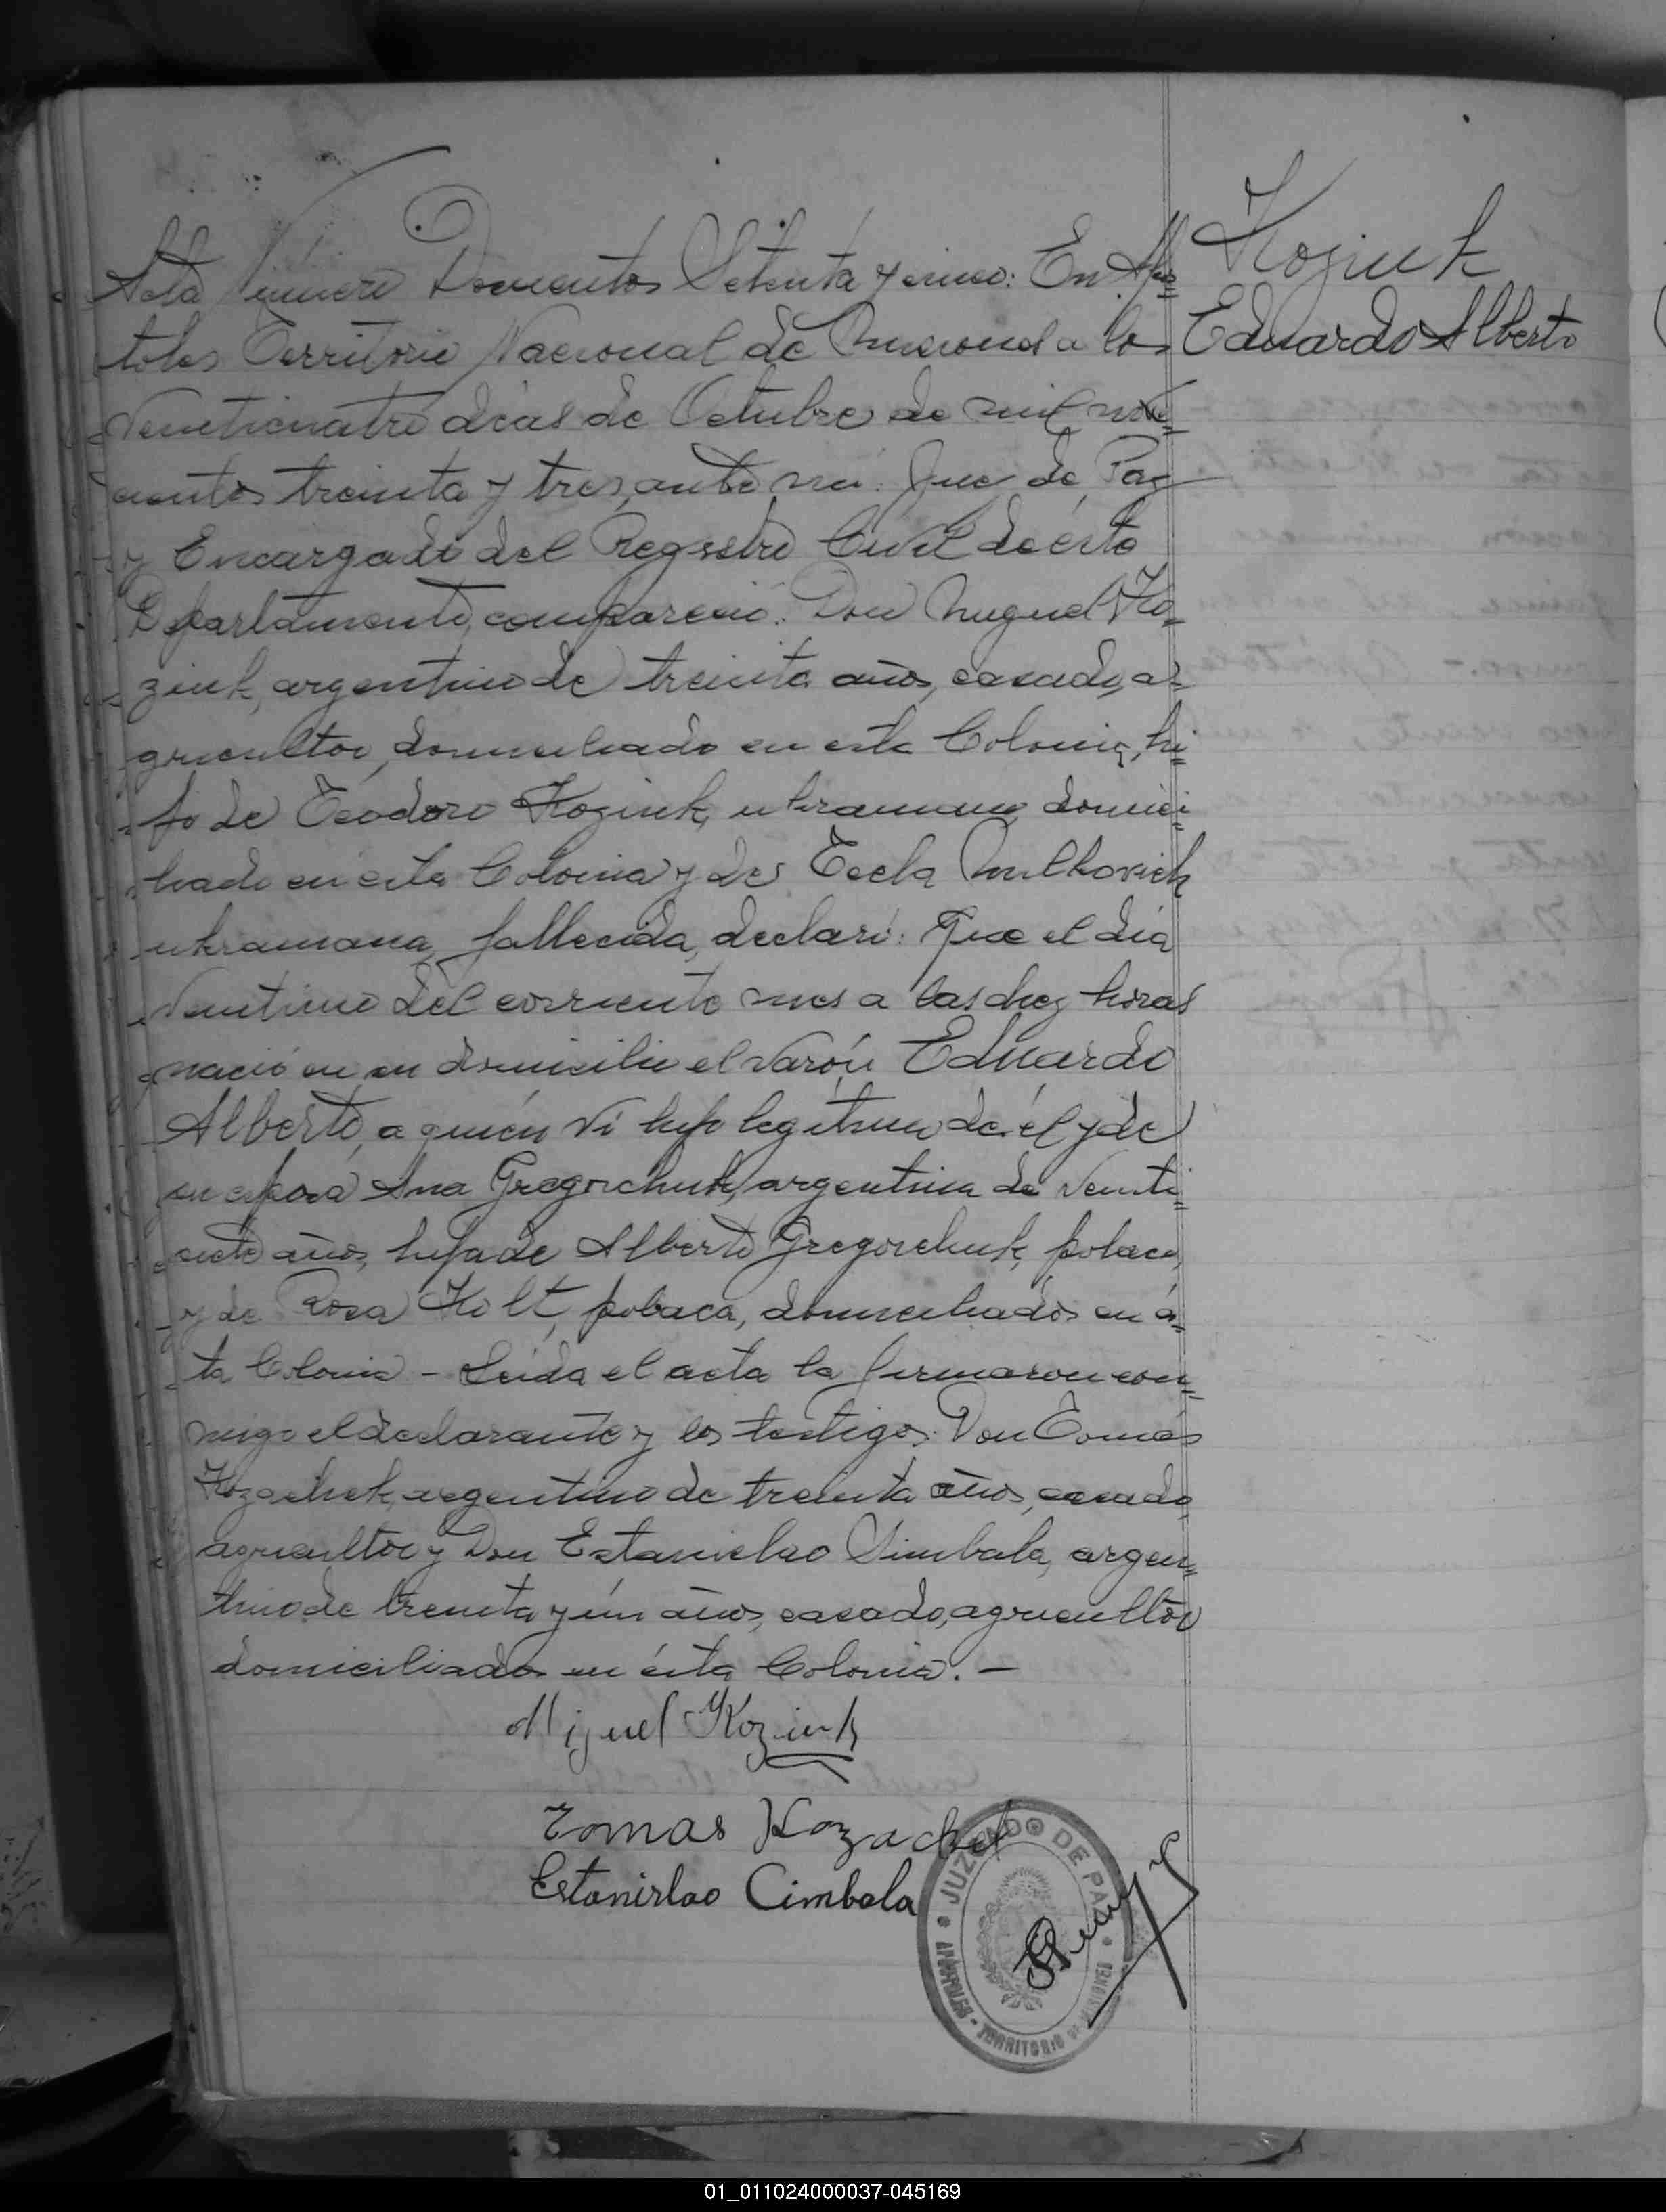 Acta Número Doscientos Setenta y cinco: En Apó=
toles Territorio Nacional de Misiones a los
Veinticuatro días de Octubre de mil nove=
cientos treinta y tres, ante mí: Juez de Paz
y Encargado del Registro Civil de ésta
Departamento, compareció: Don Miguel Ko=
ziuk, argentino de treinta años, casado, a=
gricultor, domiciliado en esta Colonia, hi=
jo de Teodoro Koziuk, ukraniano, domici=
liado en esta Colonia y de Tecla Milkovich
ukraniana, fallecida, declaró: Que el día
Veintiuno del corriente mes a las diez horas
nació en su domicilio el varón Eduardo
Alberto, a quién ví hijo legítimo de él y de
su esposa Ana Gregorchuk, argentina de Veinti=
siete años, hija de Alberto Gregorchuk, polaco,
y de Rosa Kolt, polaca, domiciliados en és=
ta Colonia - Leída el acta la firmaron con=
migo el declarante y los testigos: Don Tomás
Kozachek, argentino de treinta años, casado,
agricultor y Don Estanislao Simbala, argen=
tino de treinta y ún años, casado, agricultor
domiciliados en ésta Colonia. -
Koziuk
Eduardo Alberto
Miguel Koziuk
Tomas Kozachek
Estanislao Cimbala
JUZGADO DE PAZ
APÓSTOLES - TERRITORIO DE MISIONES
01_011024000037-045169